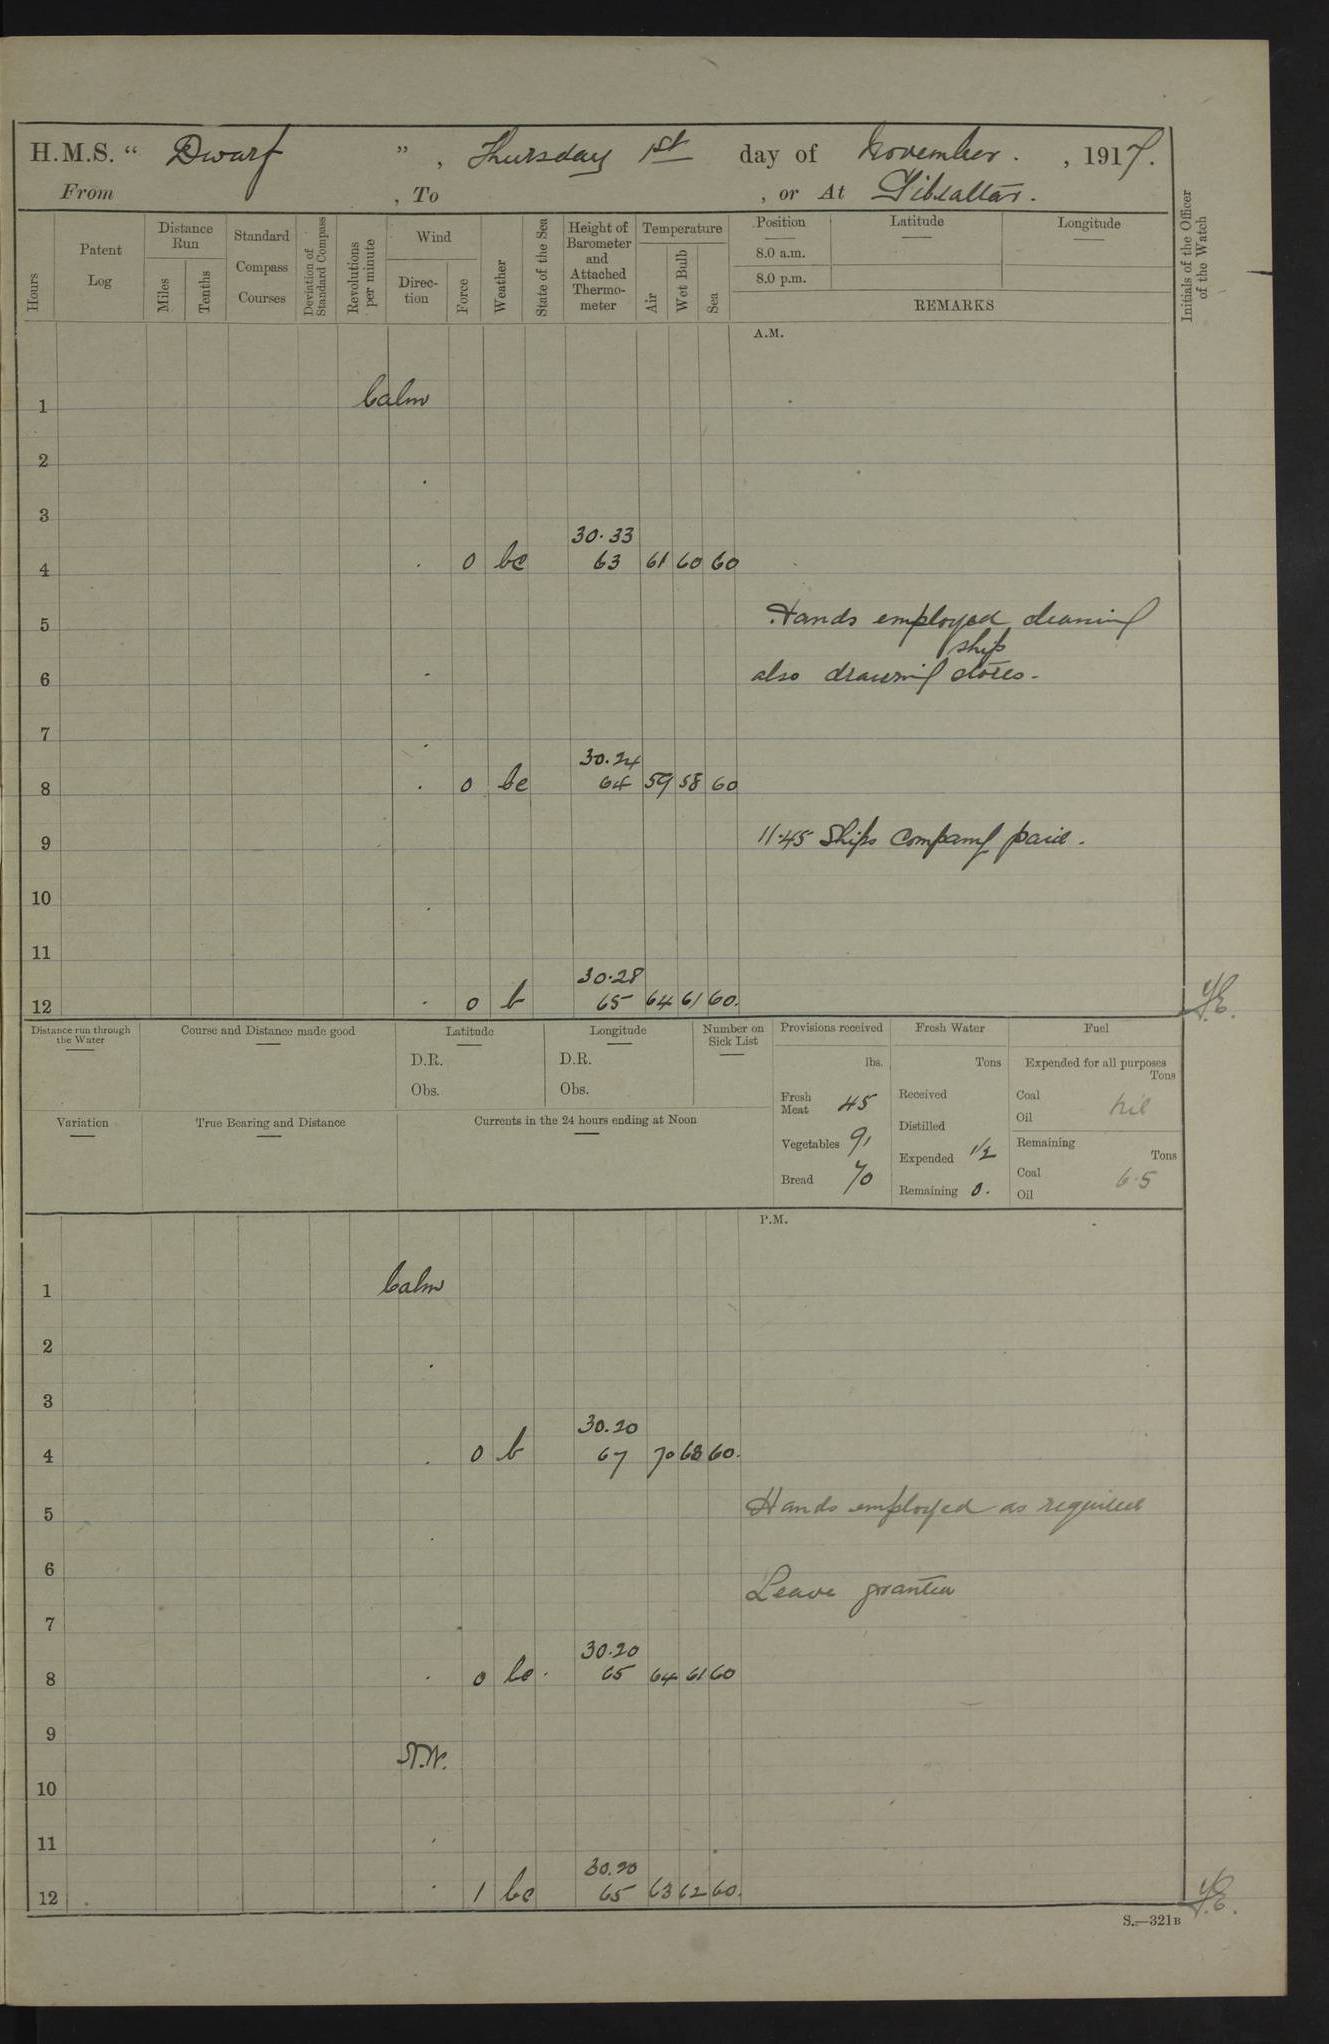 H.M.S. " Dwarf ", Thursday 1st day of November. , 1917.
From , To , or At Gibraltar.
Hours
Patent Log
Distance Run
Miles
Tenths
Standard Compass Courses
Deviation of Standard Compass
Revolutions per minute
Wind
Direction
Force
Weather
State of the Sea
Height of Barometer and Attached Thermometer
Temperature
Air
Wet Bulb
Sea
Position
8.0 a.m.
8.0 p.m.
Latitude
Longitude
REMARKS
Initials of the Officer of the Watch
A.M.
1 Calm
2
3
30.33
4 . 0 bc 63 61 60 60
5 Hands employed cleaning
ship
6 also drawing stores.
7
30.24
8 . 0 bc 64 59 58 60
9 11.45 Ships Company paid.
10
11
30.28
12 . 0 b 65 64 61 60.
Distance run through the Water
Course and Distance made good
Latitude
D.R.
Obs.
Longitude
D.R.
Obs.
Number on Sick List
Variation
True Bearing and Distance
Currents in the 24 hours ending at Noon
Provisions received
lbs.
Fresh Meat 45
Vegetables 91
Bread 70
Fresh Water
Tons
Received
Distilled
Expended 1/2
Remaining 0.
Fuel
Expended for all purposes
Tons
Coal
Oil
Nil
Remaining
Tons
Coal
Oil
6.5
P.M.
1 Calm
2
3
30.20
4 . 0 b 67 70 68 60.
5 Hands employed as required
6
Leave granted
7
30.20
8 . 0 bc . 65 64 61 60
9
N.W.
10
11
30.20
12 . 1 bc 65 63 62 60.
S.—321B